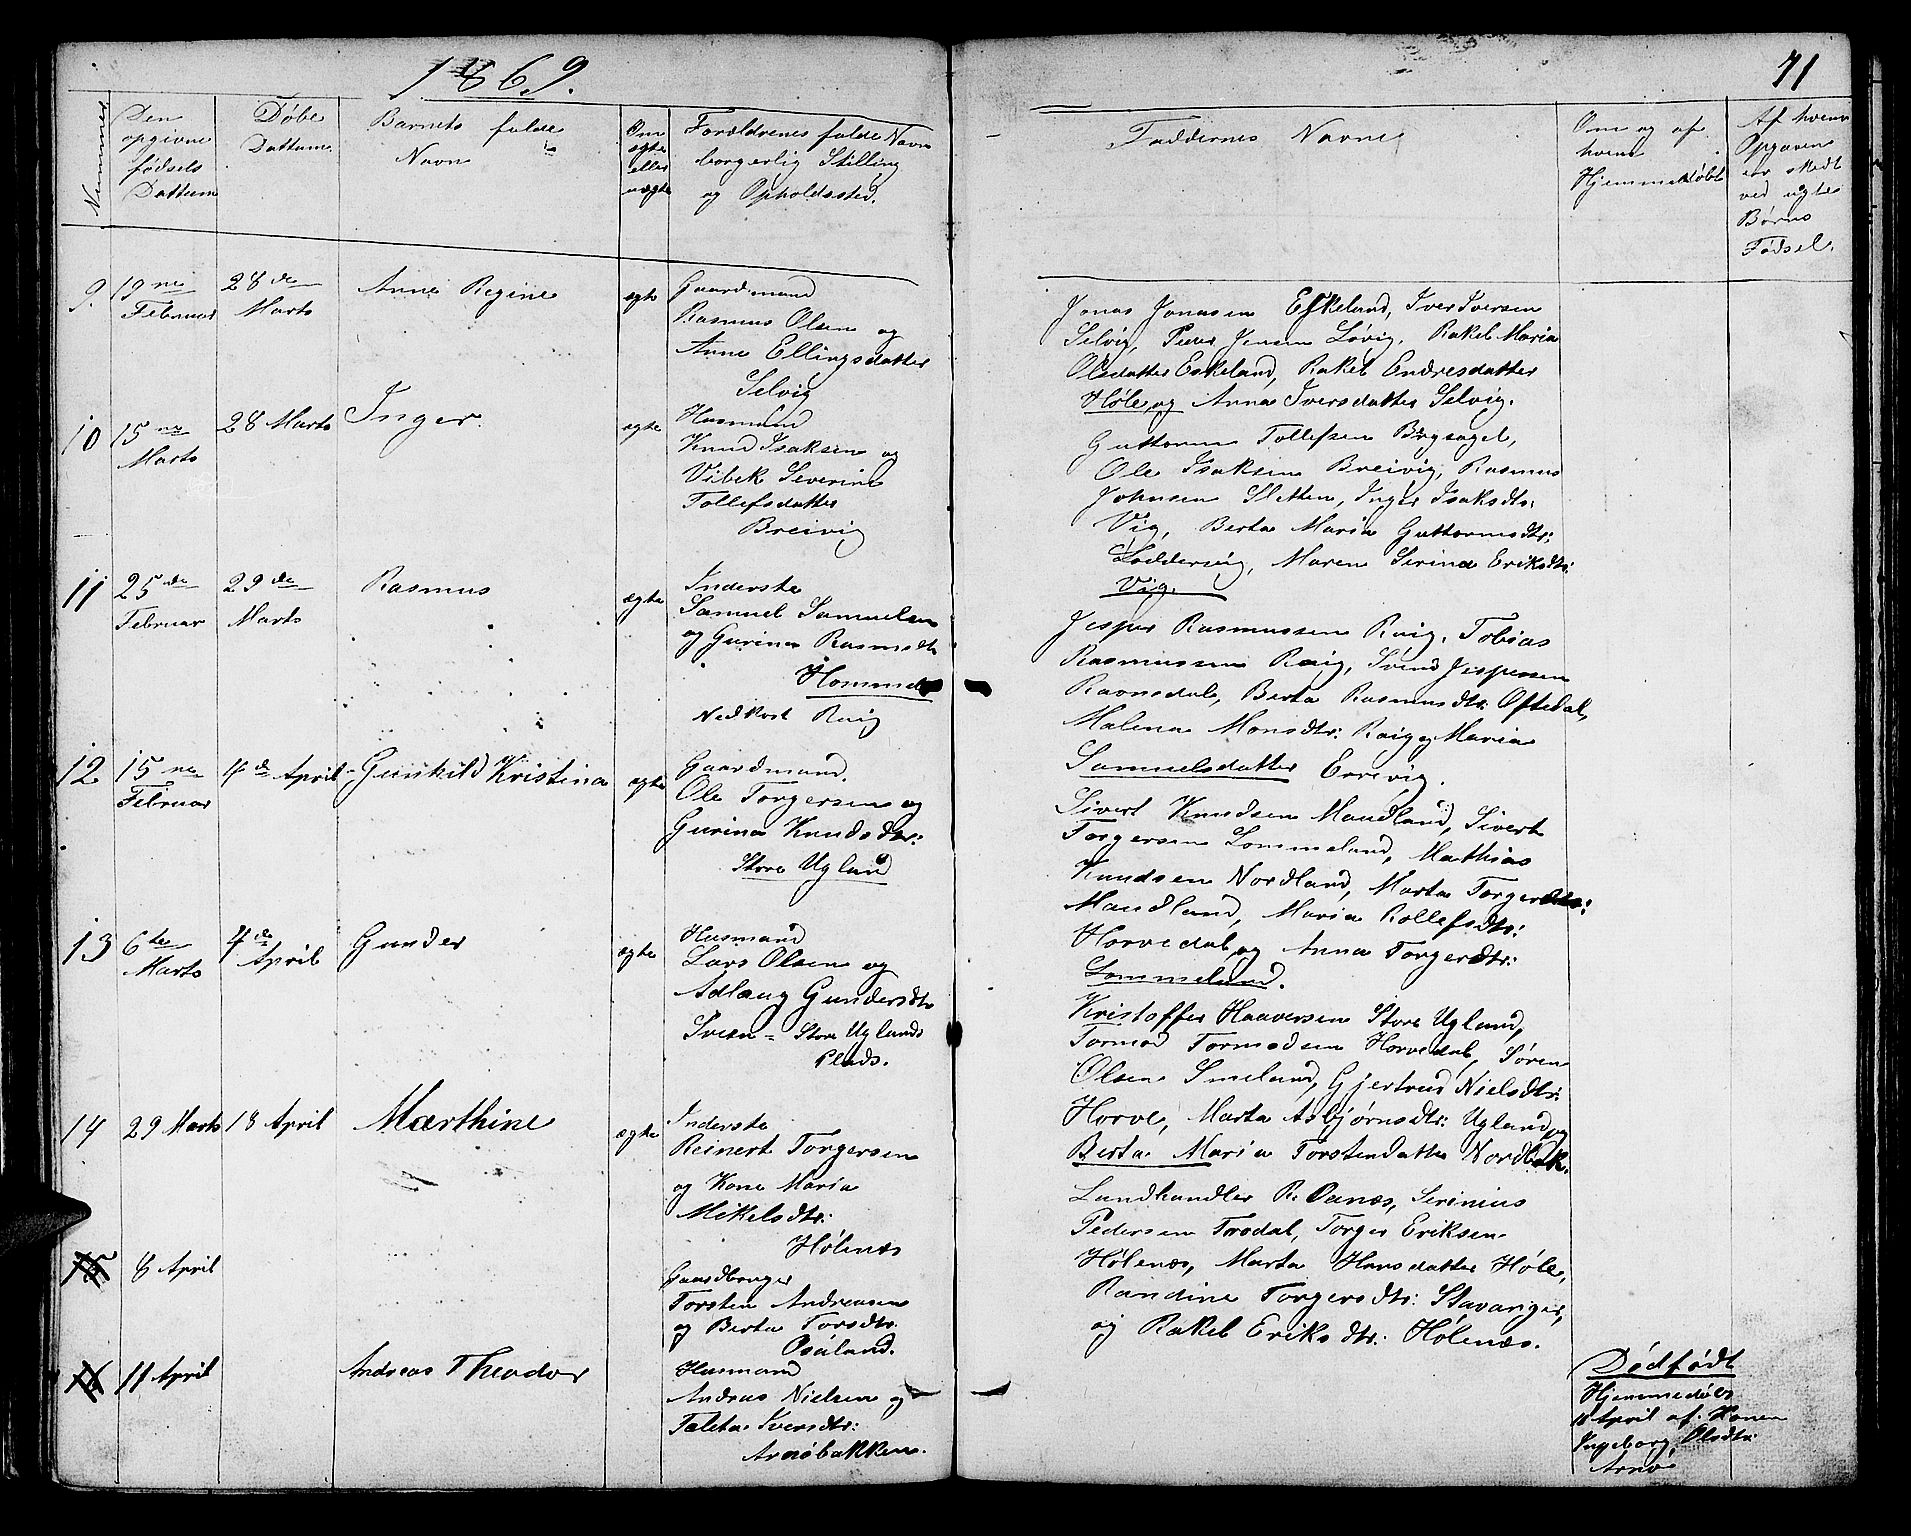 1869.
71
Nummer
Den
opgivne
fødsels
Dattum
Døbe
Dattum.
Barnets fulde
Navn
Om
ægte
eller
uægte
Forældrenes fulde Navn
borgerlig Stilling
og Opholdssted.
Faddernes Navne
Om og af
hvem
Hjemmedøbt
Af hvem
Opgaven
er skedt
ved uægte
Børns
Fødsel.
9. 19ne
Februar
28de
Marts
Anne Regine
ægte
Gaardmand
Rasmus Olsen og
Anne Ellingsdatter
Selvig
Jonas Jonasen Eskeland, Iver Iversen
Selvig, Peder Jensen Løvig, Rakel Maria
Olsdatter Eskeland, Rakel Endresdatter
Høle og Anna Iversdatter Selvig.
10 15ne
Marts
28 Marts
Inger.
ægte
Husmand
Knud Isaksen og
Vibek Severine
Tollefsdatter
Breivig
Guttorm Tollefsen Bergsagel,
Ole Isaksen Breivig, Rasmus
Johnsen Sletten, Inger Isaksdtr:
Vig, Berta Maria Guttormsdtr:
Loddervig, Maren Serina Eriksdtr:
Vig.
11 25de
Februar
29de
Marts
Rasmus
ægte
Inderste
Samuel Samuelsen
og Gurina Rasmsdtr
Hommeland
Nedkost Raig
Jesper Rasmussen Raig, Tobias
Rasmussen Raig, Svend Jespersen
Ravnsdal, Berta Rasmusdtr: Oftedal,
Malena Monsdtr: Raig og Maria
Samuelsdatter Errevig.
12 15ne
Februar
4de April
Gunhild Kristina
ægte
Gaardmand.
Ole Torgersen og
Gurina Knudsdtr:
Store Ugland
Sivert Knudsen Maudland, Sivert
Torgersen Lommeland, Mathias
Knudsen Nordland, Marta Torgersdtr:
Maudland, Maria Rollefsdtr:
Horvedal, og Anna Torgersdtr:
Lommeland.
13 6te
Marts
4de
April
Gunder
ægte
Husmand
Lars Olsen og
Adlaug Gundersdtr
Sveen - Store Uglands
Plads.
Kristoffer Haaversen Store Ugland,
Tormod Tormodsen Horvedal, Søren
Olsen Smeland, Gjertrud Nielsdtr:
Horve, Marta Asbjørnsdtr: Ugland og
Berta Maria Torstendatter Nordbek.
14 29 Marts
18 April
Marthine
ægte
Inderste
Reinert Torgersen
og Kone Maria
Mikelsdtr:
Hølenæs
Landhandler R. Oanæs, Serinius
Pedersen Frodal, Torger Eriksen
Hølenæs, Marta Hansdatter Høle,
Randine Torgersdtr: Stavanger,
og Rakel Eriksdtr: Hølenæs.
15 8 April
Gaardbruger
Torsten Andreasen
og Berta Torsdtr:
Osaland.
Dødfødt
16 11 April
Andreas Theodor
Husmand
Andreas Nielsen og
Taleta Iversdtr:
Arnøbakken.
Hjemmedøbt
11 April af Konen
Ingeborg Olsdtr:
Arnø